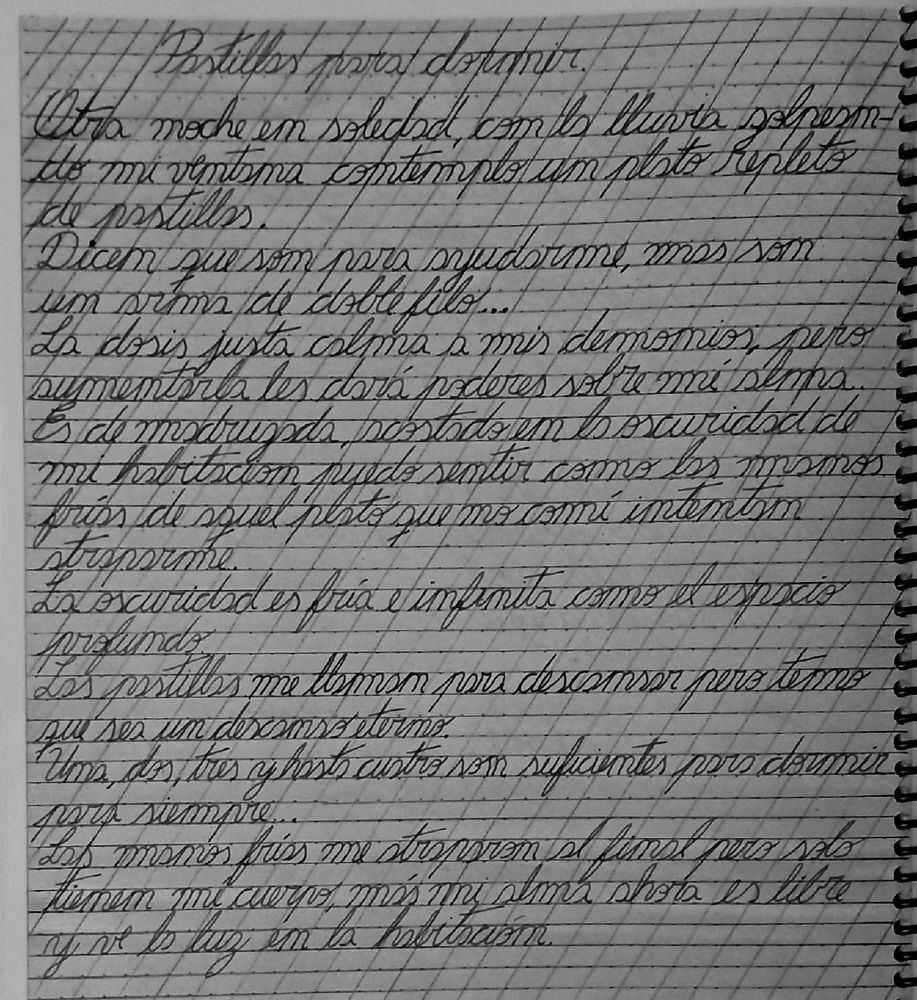 Pastillas para dormir.
Otra noche en soledad, con la lluvia golpean-
do mi ventana contemplo un plato repleto
de pastillas.
Dicen que son para ayudarme, mas son
un arma de doble filo...
La dosis justa calma a mis demonios, pero
aumentarla les dará poderes sobre mi alma.
Es de madrugada, acostado en la oscuridad de
mi habitacion, puedo sentir como las manos
frías de aquel plato que no comí intentan
atraparme.
La oscuridad es fría e infinita como el espacio
profundo.
Las pastillas me llaman para descansar pero temo
que sea un descanso eterno.
Una, dos, tres y hasta cuatro son suficientes para dormir
para siempre...
Las manos frías me atraparon al final pero solo
tienen mi cuerpo, más mi alma ahora es libre
y ve la luz en la habitación.